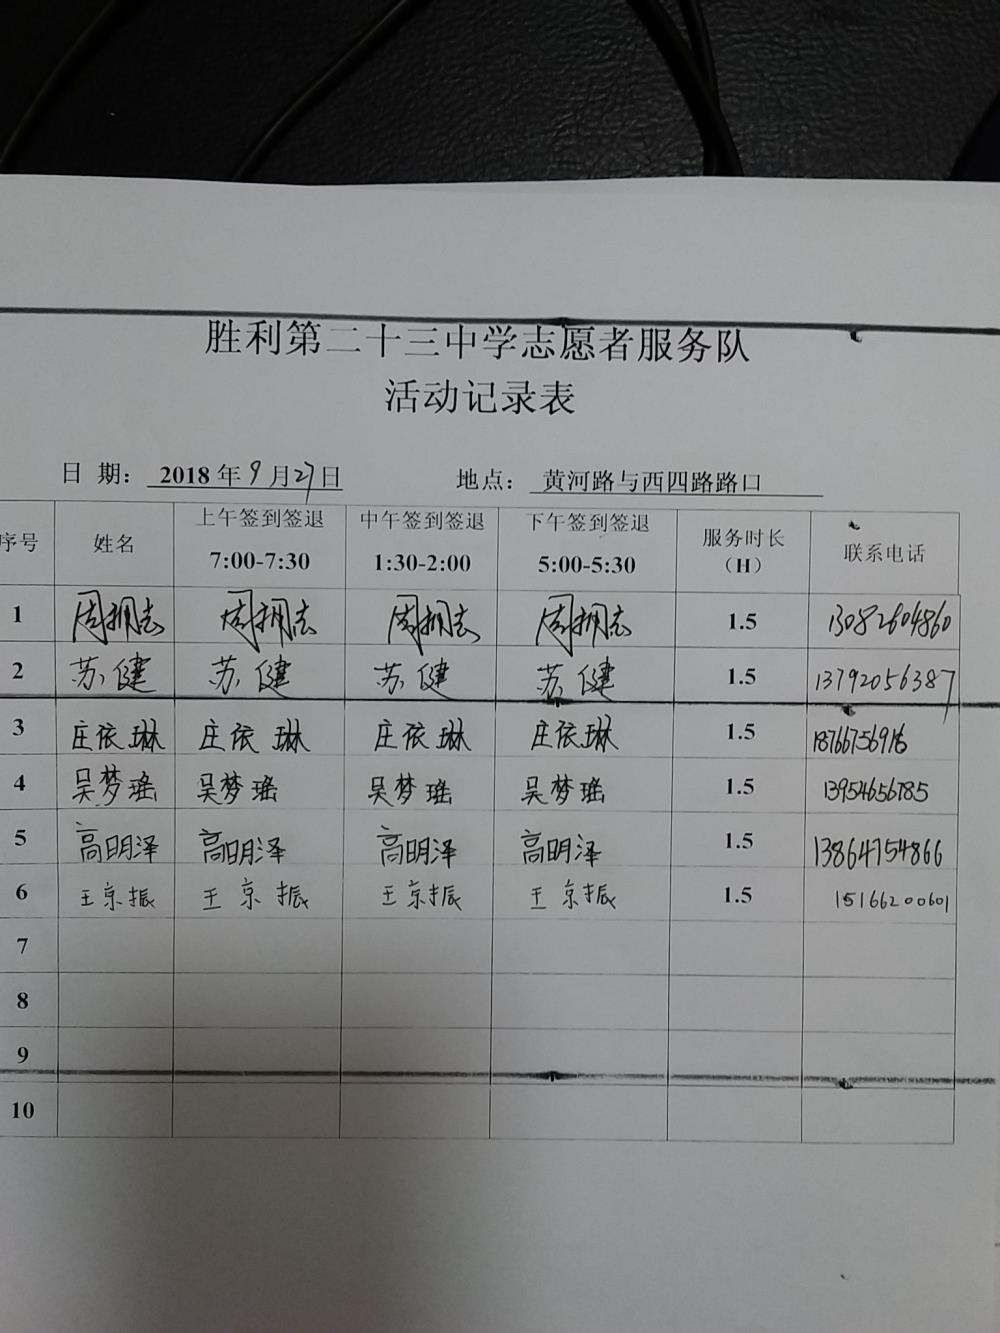 胜利第二十三中学志愿者服务队
活动记录表
日 期： 2018 年 9 月 27 日 地点： 黄河路与西四路路口
序号 姓名 上午签到签退 7:00-7:30 中午签到签退 1:30-2:00 下午签到签退 5:00-5:30 服务时长（H） 联系电话
1 周拥志 周拥志 周拥志 周拥志 1.5 13082604860
2 苏健 苏健 苏健 苏健 1.5 13792056387
3 庄依琳 庄依琳 庄依琳 庄依琳 1.5
4 吴梦瑶 吴梦瑶 吴梦瑶 吴梦瑶 1.5 13954656785
5 高明泽 高明泽 高明泽 高明泽 1.5 13864754866
6 王京振 王京振 王京振 王京振 1.5 15166200601
7
8
9
10